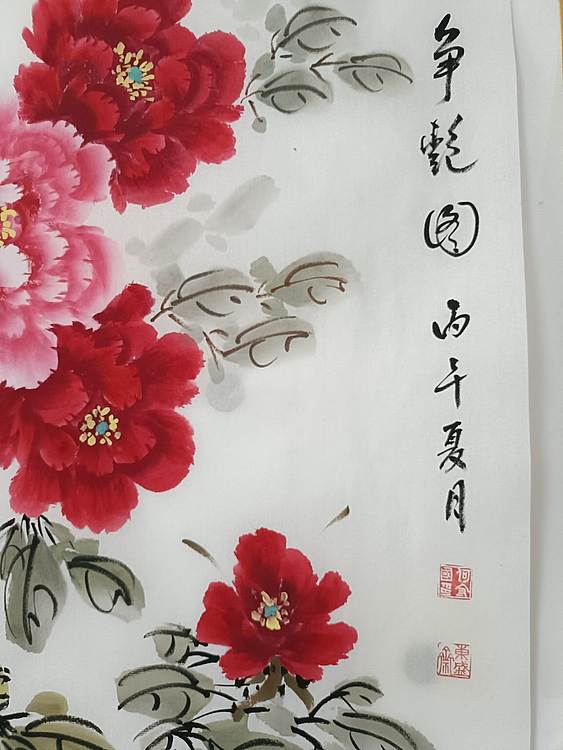 争艳图 丙午夏月